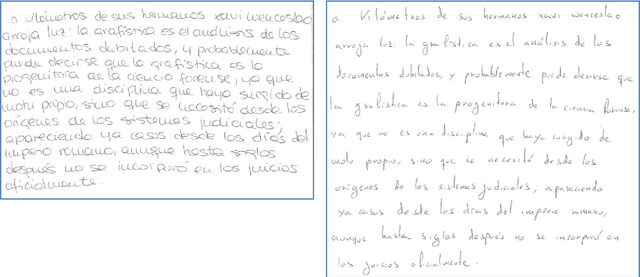 a kilómetros de sus hermanos xavi wenceslao
arroja luz: la grafística es el análisis de los
documentos debitados, y probablemente
puede decirse que la grafística es la
progenitora de la ciencia forense, ya que
no es una disciplina que haya surgido de
motu propio, sino que se necesitó desde los
orígenes de los sistemas judiciales;
apareciendo ya casos desde los días del
imperio romano, aunque hasta siglos
después no se incorporó en los juicios
oficialmente.
a Kilómetros de sus hermanos xavi wenceslao
arroja luz: la grafística es el análisis de los
documentos dubitados, y probablemente puede decirse que
la grafística es la progenitora de la ciencia forense,
ya que no es una disciplina que haya surgido de
motu propio, sino que se necesitó desde los
orígenes de los sistemas judiciales; apareciendo
ya casos desde los días del imperio romano,
aunque hasta siglos después no se incorporó en
los juicios oficialmente.